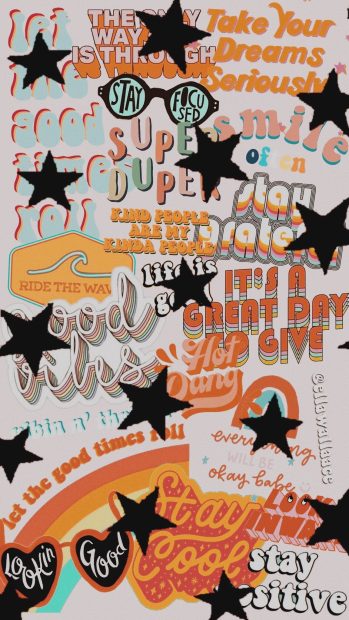 THE ONLY
WAY
IS THROUGH
Take Your
Dreams
Seriously
let
the
good
times
roll
STAY
FOCUSED
SUPER
DUPER
smile
often
KIND PEOPLE
ARE MY
KINDA PEOPLE
stay
grateful
RIDE THE WAVE
life is
good vibes
IT'S A
GREAT DAY
TO GIVE
Hot
Dang
@ellawallace
vibin' n' thr
let the good times roll
everything
WILL BE
okay babe
Lookin
Good
Stay
Cool
LOOK
stay
positive